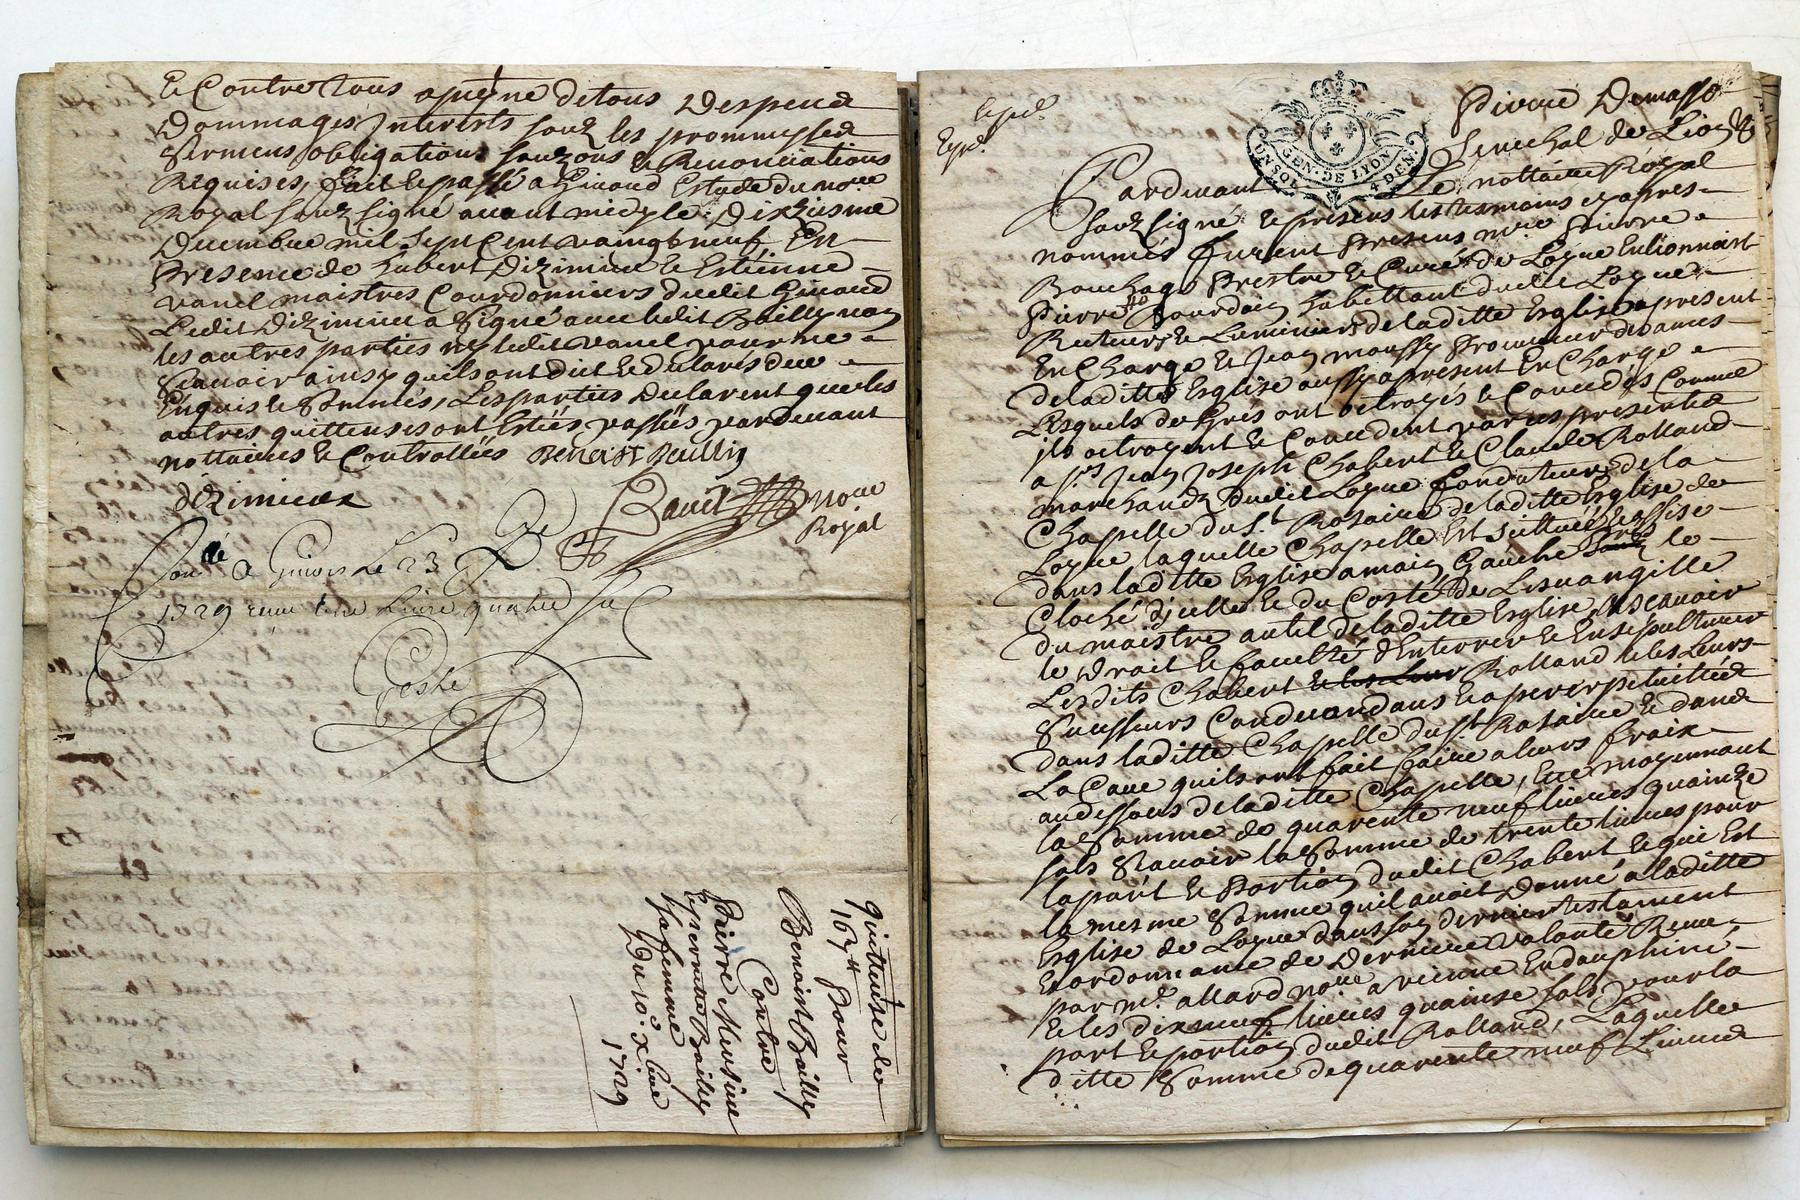 Et Contre tous apeyne de tous Despend
Dommages Interests souz les prommysses
Sermens obligations souzons & Renonciations
Requises, fait & passé a Givord Estude du nore
Royal souz signé avant midy le Dixiesme
Decembre mil sept Cent vaingt neuf En
Presence de hubert Diziminu & Estienne
vanel maistres Courdonniers dudit Givord
Ledit Diziminu a Signé avec ledit Bailly non
les autres parties ny ledit vanel pour ne
Scavoir ainsy quils ont dit & declarés de ce
Enquis & Sommés, Les parties declarent que les
autres quittenses ont Estées passées pardevant
nottaires & Controllées Benoist Baillly
dizimieux
noue
Royal
Conlé a Givors Le 23 Xe
1729 receu une Livre quatre sols
Coste
quittense de
167 tt Pour
Benoist Bailly
Contre
Pierre Mersine
Bailly
sa femme
Du 10e Xbre
1729
Expé.
Expé.
GEN. DE LYON
UN SOL 4 DEN.
Pierre Demasso
Senechal de Lion &
Pardevant Le nottaire Royal
souz signé & presens les tesmoins cy apres
nommés furent Presens mre Pierre
Bouchage Prestre & Curé de Loyne En lionnois
Pierre Jourdan habittant dudit Loyne
Recteurs & Luminiers de laditte Esglise apresent
En Charge & Jean moussy Procureur des ames
de laditte Esglise aussy apresent En Charge
Lesquels de Grés ont octroyés & Concedés Comme
ils octroyent & Concedent par ces presentes
a srs Jean Joseph Chabert & Claude Rolland
marchands dudit Loyne fondateurs de la
Chapelle du St Rosaire de laditte Esglise de
Loyne laquelle Chapelle Est scittuée & assise
dans laditte Esglise a main Gauche le
Cloché d'icelle & du Costé de Lesvangille
du maistre autel de laditte Esglise, Ascavoir
le Droit & faculté d'Enterrer & Ensepulturer
Lesdits Chabert Rolland & les Leurs
Susesseurs Condecendans a perpetuittée
dans laditte Chapelle du St Rosaire & dans
La Cave quils ont fait faire a leurs fraix
audessous de laditte Chapelle, Et ce moyennant
la Somme de quarente neuf livres quainze
sols Scavoir la Somme de trente livres pour
la part & Portion dudit Chabert & qui Est
la mesme Somme quil avoit Donné a laditte
Esglise de Loyne dans son dernier testament
& ordonnance de Derniere volonté Receu
par me allard noue a vienne En dauphiné
& les dixneuf livres quainse sols pour la
part & portion dudit Rolland, Laquelle
ditte Somme de quarente neuf Livres